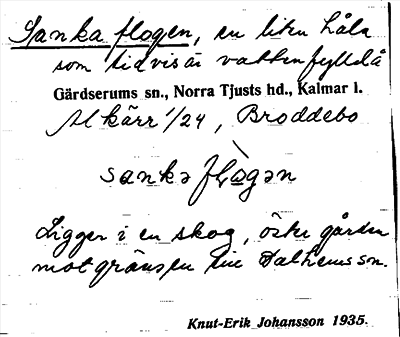 Sanka flogen, en liten håla
som tidvis är vattenfylld å
Gärdserums sn., Norra Tjusts hd., Kalmar l.
Alkärr 1/24, Broddebo
sankə flogən
Ligger i en skog, öster gården
mot gränsen till Dalhems sn.
Knut-Erik Johansson 1935.